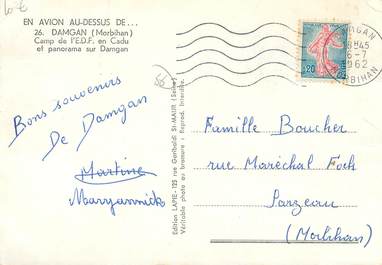 EN AVION AU-DESSUS DE...
26. DAMGAN (Morbihan)
Camp de l'E.D.F. en Cadu
et panorama sur Damgan
DAMGAN
18H45
6-7
1962
MORBIHAN
0,20
56
Bons souvenirs
De Damgan
Martine
Maryannick
Edition LAPIE - 125 rue Garibaldi ST-MAUR (Seine)
Véritable photo au bromure - Reprod. Interdite.
Famille Boucher
rue Maréchal Foch
Sarzeau
(Morbihan)